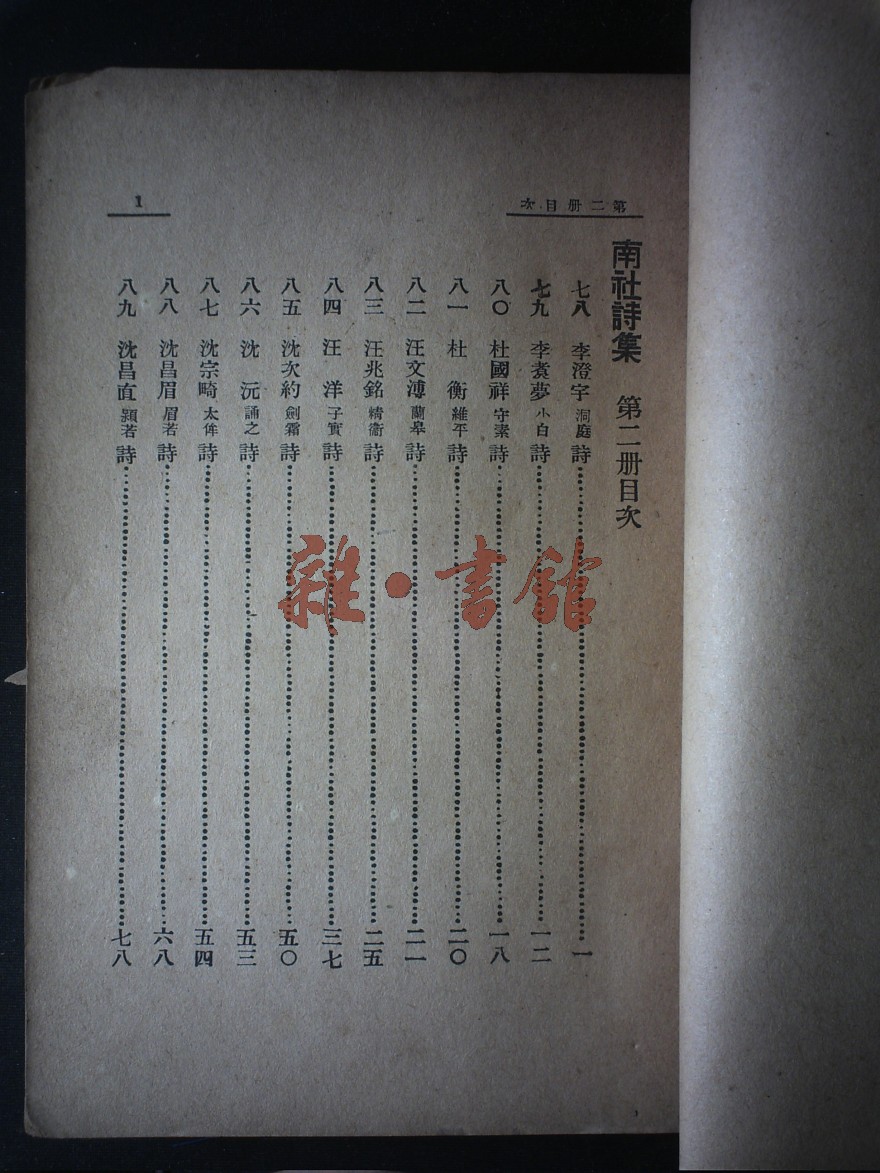 第二册目次
1
南社詩集 第二册目次
七八 李澄宇 洞庭 詩 一
七九 李煮夢 小白 詩 一二
八〇 杜國祥 守素 詩 一八
八一 杜衡 維平 詩 二〇
八二 汪文溥 蘭皋 詩 二一
八三 汪兆銘 精衞 詩 二五
八四 汪洋 子實 詩 三七
八五 沈次約 劍霜 詩 五〇
八六 沈沅 誦之 詩 五三
八七 沈宗畸 太侔 詩 五四
八八 沈昌眉 眉若 詩 六八
八九 沈昌直 頴若 詩 七八
雜·書館